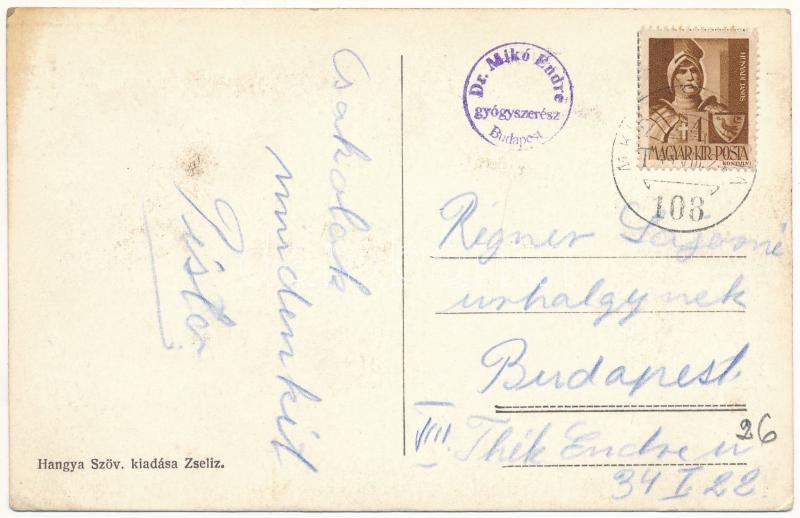 Csókolok
mindenkit
Pista
Hangya Szöv. kiadása Zseliz.
Dr. Mikó Endre
gyógyszerész
Budapest
HUNYADI JÁNOS
4
MAGYAR·KIR·POSTA
KONECSNI
108
Régner Lajosné
urhölgynek
Budapest
VIII. Thék Endre u
34 I 22.
26